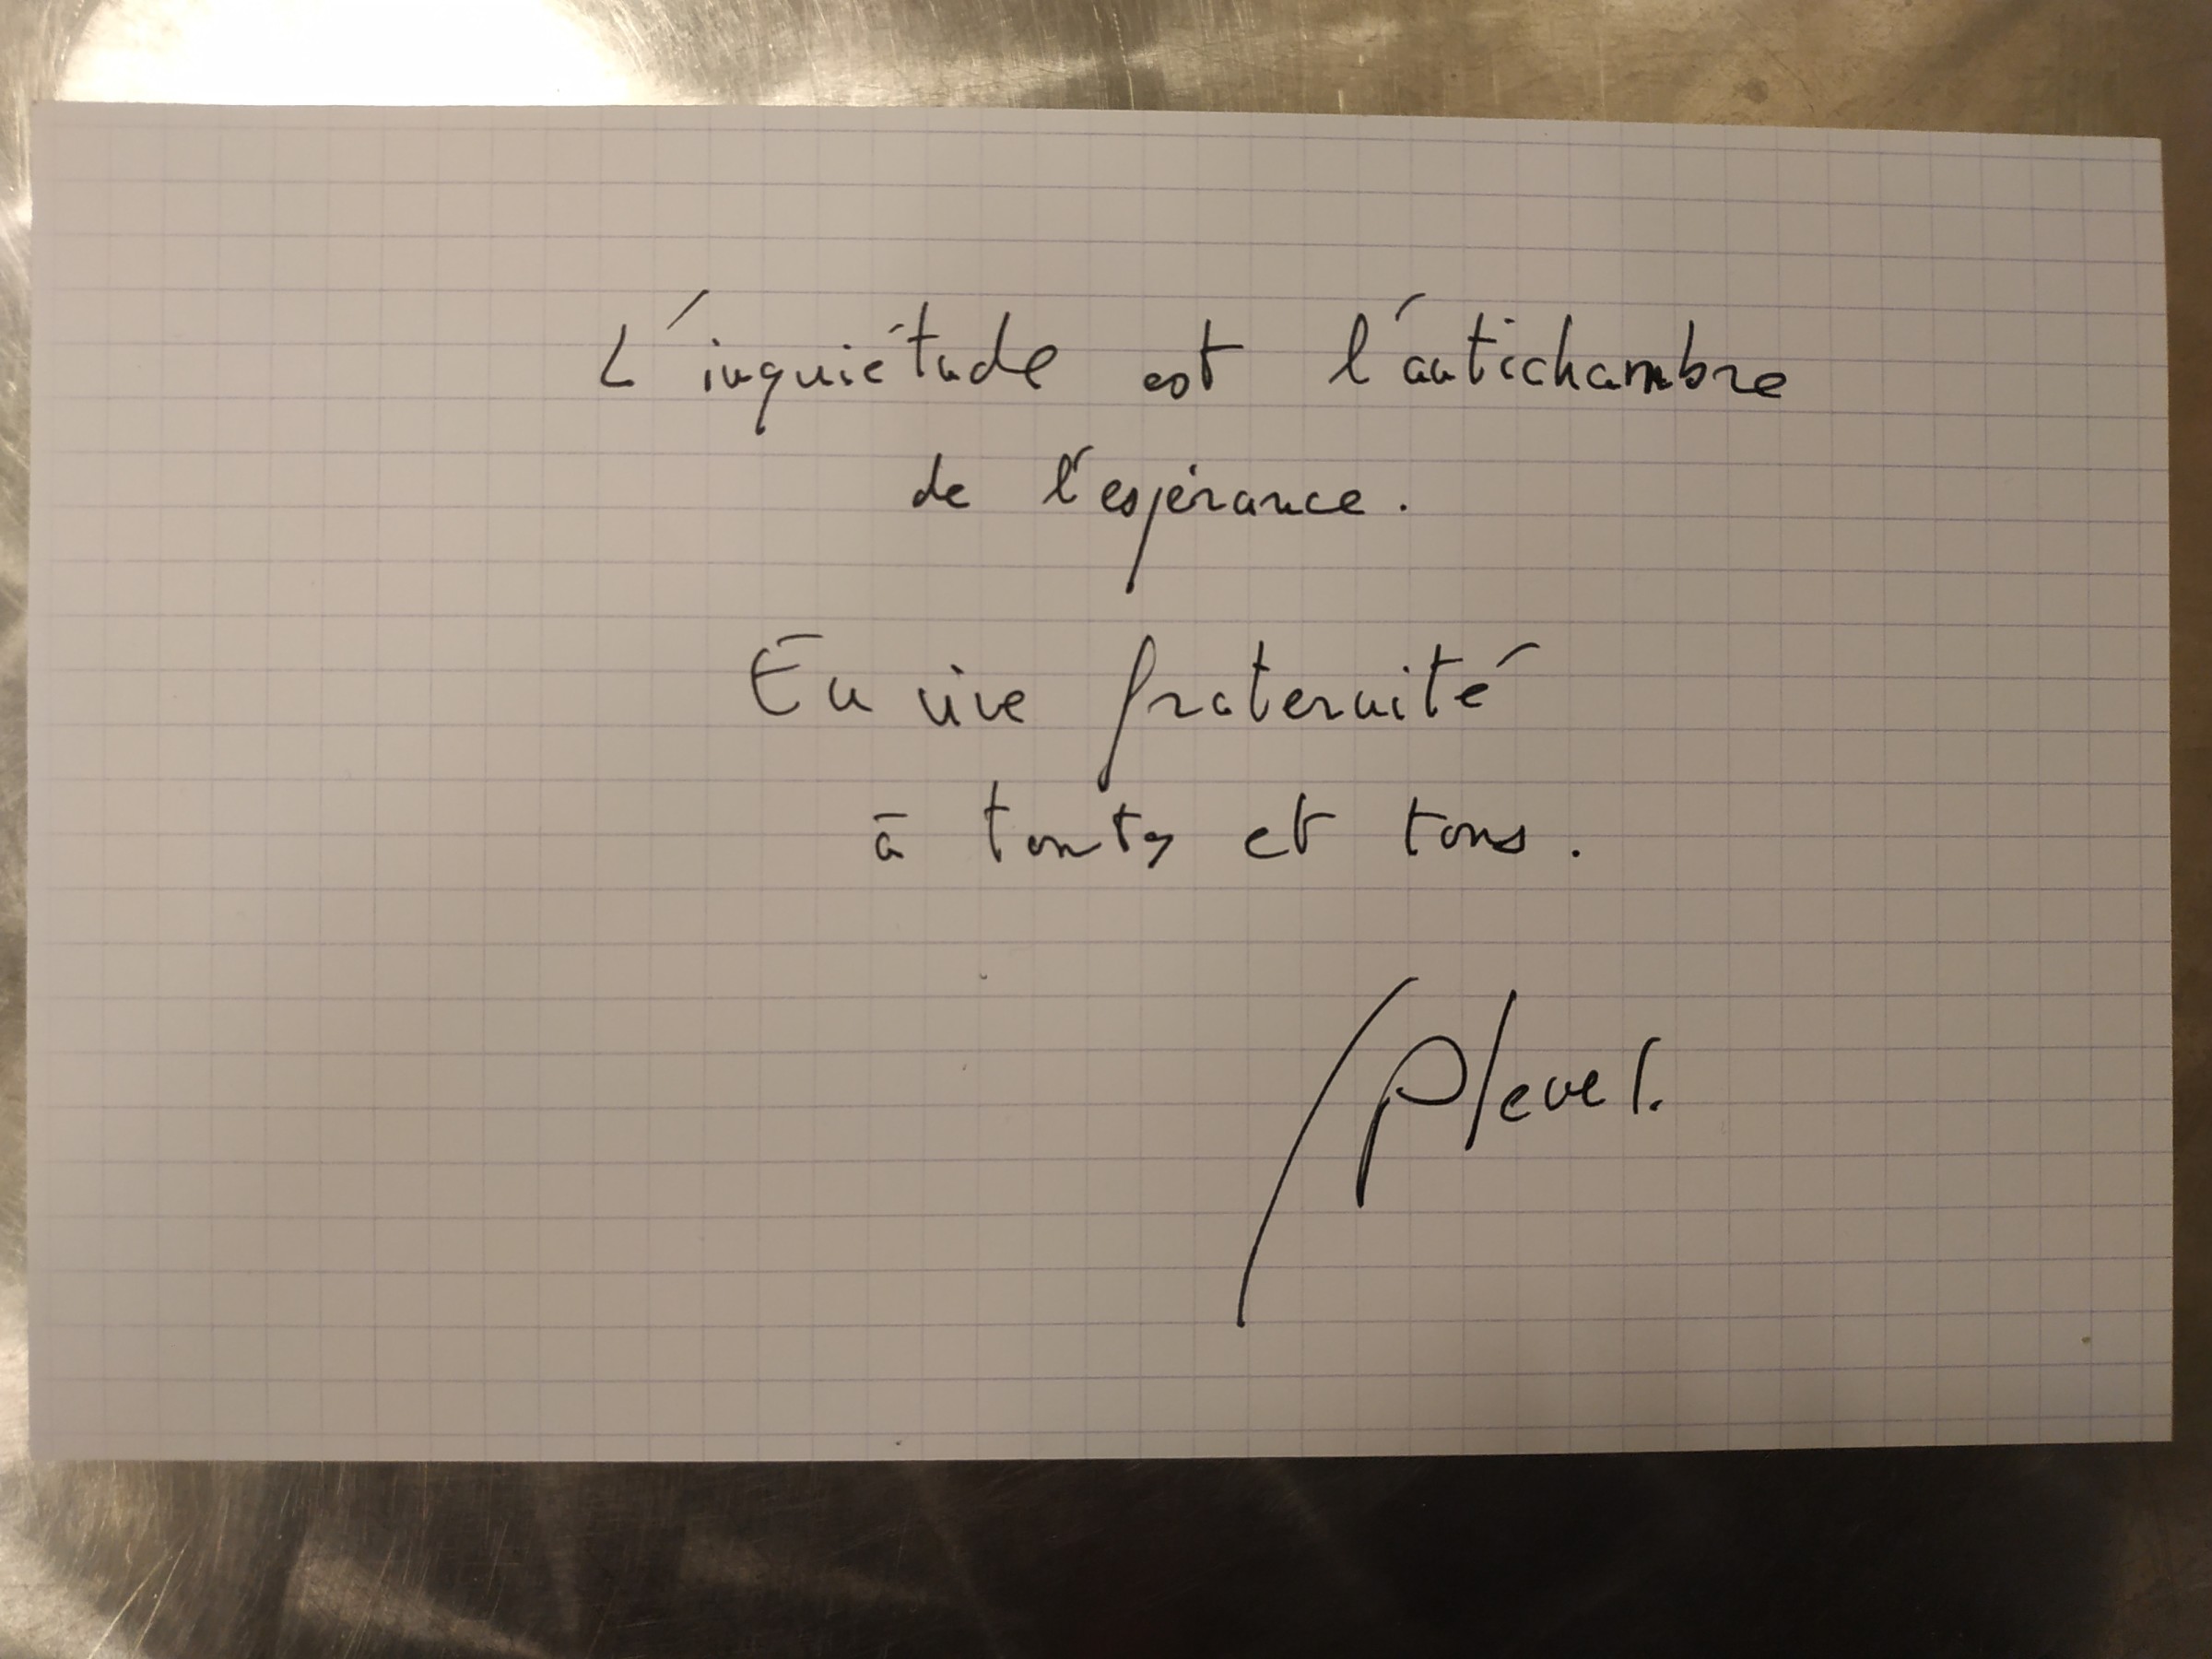 L'inquiétude est l'antichambre
de l'espérance.
En vive fraternité
à toutes et tous.
Plenel.